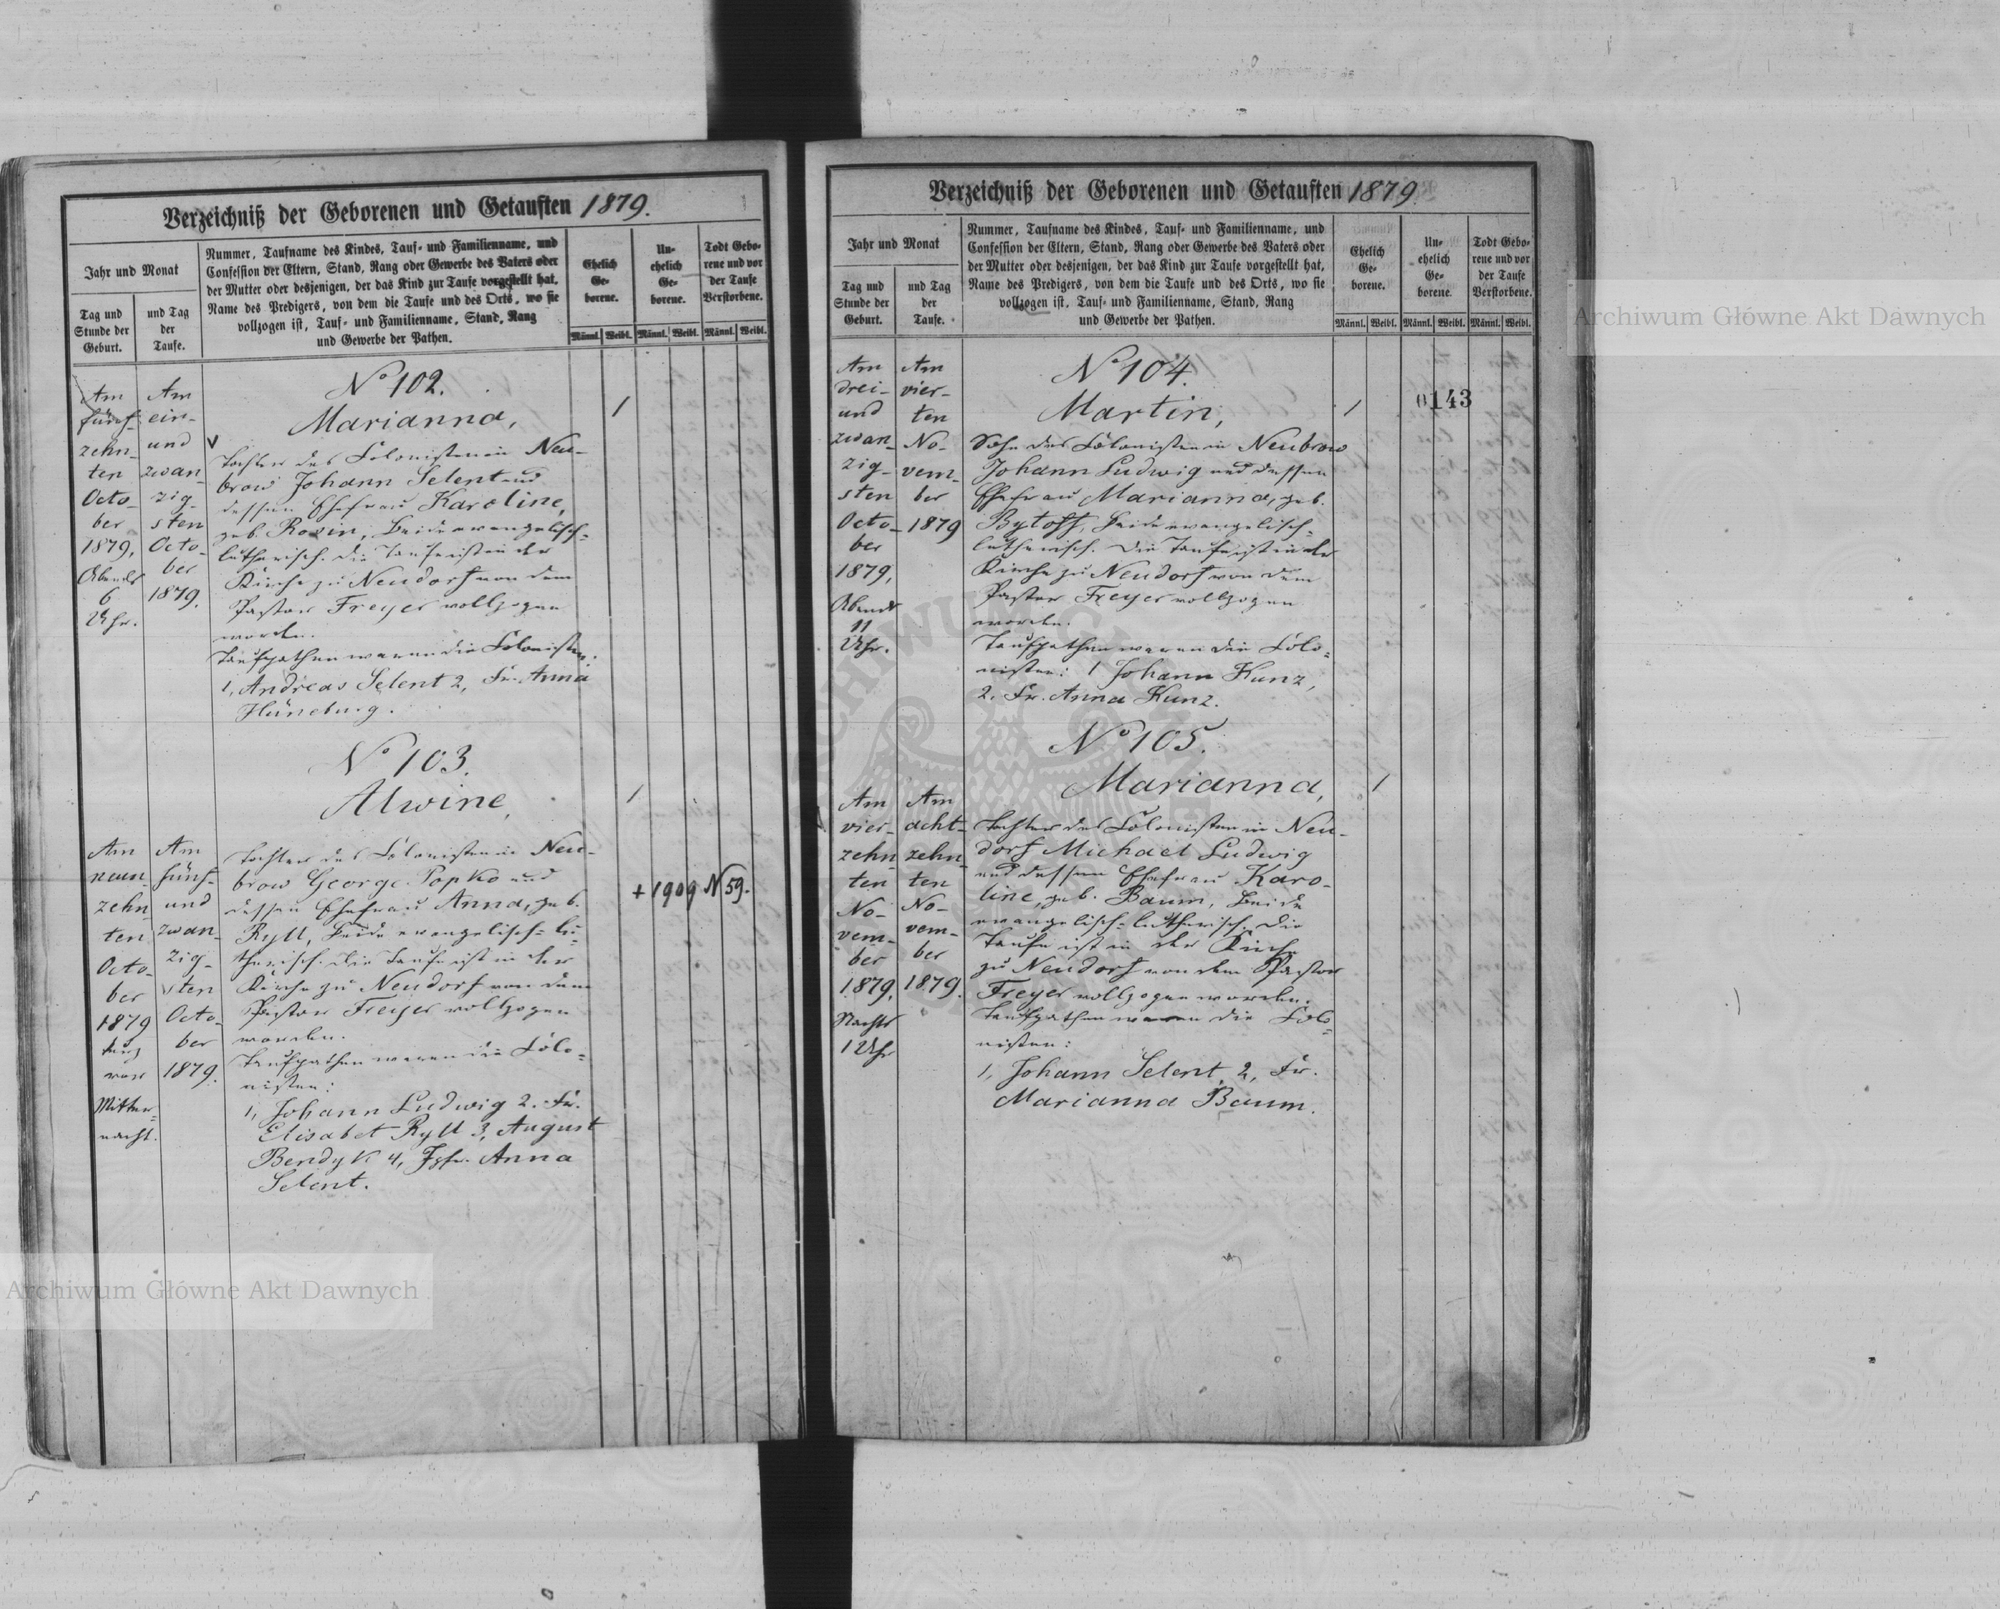 Verzeichniß der Geborenen und Getauften 1879.
Jahr und Monat
Tag und
Stunde der
Geburt.
und Tag
der
Taufe.
Nummer, Taufname des Kindes, Tauf- und Familienname, und
Confession der Eltern, Stand, Rang oder Gewerbe des Vaters oder
der Mutter oder desjenigen, der das Kind zur Taufe vorgestellt hat,
Name des Predigers, von dem die Taufe und des Orts, wo sie
vollzogen ist, Tauf- und Familienname, Stand, Rang
und Gewerbe der Pathen.
Ehelich
Ge-
borene.
Un-
ehelich
Ge-
borene.
Todt Gebo-
rene und vor
der Taufe
Verstorbene.
Männl. Weibl. Männl. Weibl. Männl. Weibl.
Am
fünf-
zehn-
ten
Octo-
ber
1879,
Abends
6
Uhr.
Am
ein-
und
zwan-
zig-
sten
Octo-
ber
1879.
No 102.
Marianna,
Tochter des Colonisten in Neu-
brow Johann Selent und
dessen Ehefrau Karoline,
geb. Rosin, beide evangelisch-
lutherisch. Die Taufe ist in der
Kirche zu Neudorf von dem
Pastor Freyer vollzogen
worden.
Taufpathen waren die Colonisten:
1, Andreas Selent 2, Fr. Anna
Hüneburg.
1
Am
neun-
zehn
ten
Octo-
ber
1879
kurz
vor
Mitter-
nacht.
Am
fünf-
und
zwan-
zig-
sten
Octo-
ber
1879.
No 103.
Alwine,
Tochter des Colonisten in Neu-
brow George Popko und
dessen Ehefrau Anna, geb.
Ryll, beide evangelisch-lu-
therisch. Die Taufe ist in der
Kirche zu Neudorf von dem
Pastor Freyer vollzogen
worden.
Taufpathen waren die Colo-
nisten:
1, Johann Ludwig 2. Fr.
Elisabet Ryll 3, August
Bendyk 4, Jgfr. Anna
Selent.
1
+ 1909 N 59.
Verzeichniß der Geborenen und Getauften 1879
Jahr und Monat
Tag und
Stunde der
Geburt.
und Tag
der
Taufe.
Nummer, Taufname des Kindes, Tauf- und Familienname, und
Confession der Eltern, Stand, Rang oder Gewerbe des Vaters oder
der Mutter oder desjenigen, der das Kind zur Taufe vorgestellt hat,
Name des Predigers, von dem die Taufe und des Orts, wo sie
vollzogen ist, Tauf- und Familienname, Stand, Rang
und Gewerbe der Pathen.
Ehelich
Ge-
borene.
Un-
ehelich
Ge-
borene.
Todt Gebo-
rene und vor
der Taufe
Verstorbene.
Männl. Weibl. Männl. Weibl. Männl. Weibl.
Am
drei-
und
zwan-
zig-
sten
Octo-
ber
1879,
Abends
11
Uhr.
Am
vier-
ten
No-
vem-
ber
1879
No 104.
Martin,
Sohn des Colonisten in Neubrow
Johann Ludwig und dessen
Ehefrau Marianna, geb.
Bytoff, beide evangelisch-
lutherisch. Die Taufe ist in der
Kirche zu Neudorf von dem
Pastor Freyer vollzogen
worden.
Taufpathen waren die Colo-
nisten: 1 Johann Kunz,
2. Fr. Anna Kunz.
1
143
Am
vier-
zehn-
ten
No-
vem-
ber
1879,
Nachts
1 Uhr
Am
acht-
zehn-
ten
No-
vem-
ber
1879.
No 105.
Marianna,
Tochter des Colonisten in Neu-
dorf Michael Ludwig
und dessen Ehefrau Karo-
line, geb. Baum, beide
evangelisch-lutherisch. Die
Taufe ist in der Kirche
zu Neudorf von dem Pastor
Freyer vollzogen worden.
Taufpathen waren die Colo-
nisten:
1, Johann Selent, 2, Fr.
Marianna Baum.
1
Archiwum Główne Akt Dawnych
Archiwum Główne Akt Dawnych